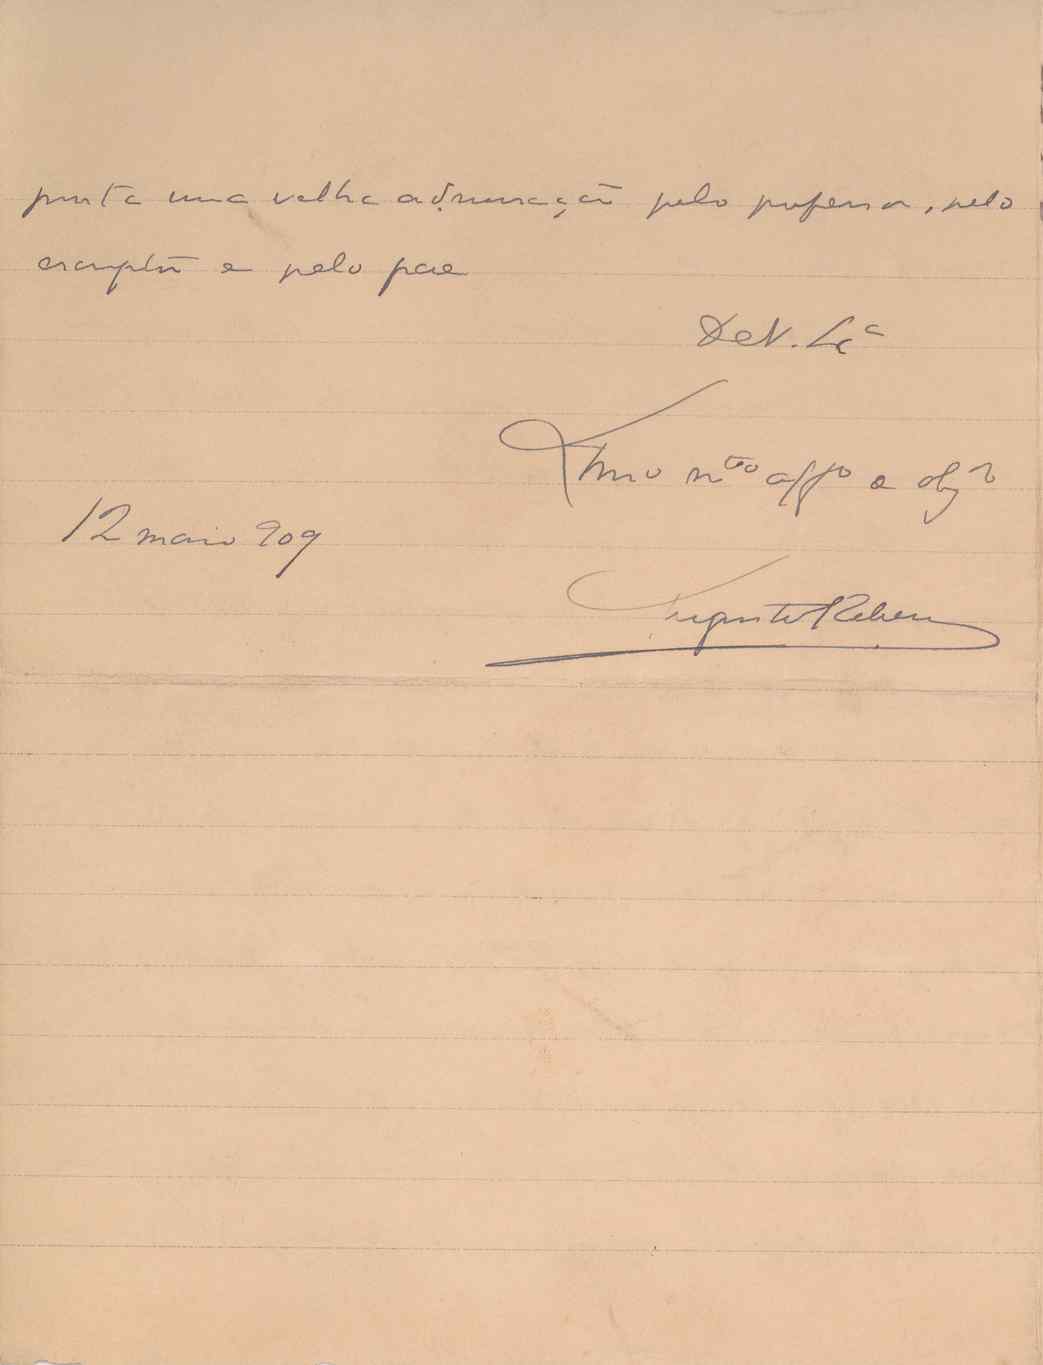 presta uma velha admiração pelo professor, pelo
exemplo e pelo pae
De V. Exª
Amo mto affo e obgo
12 maio 909
Augusto Ribeiro